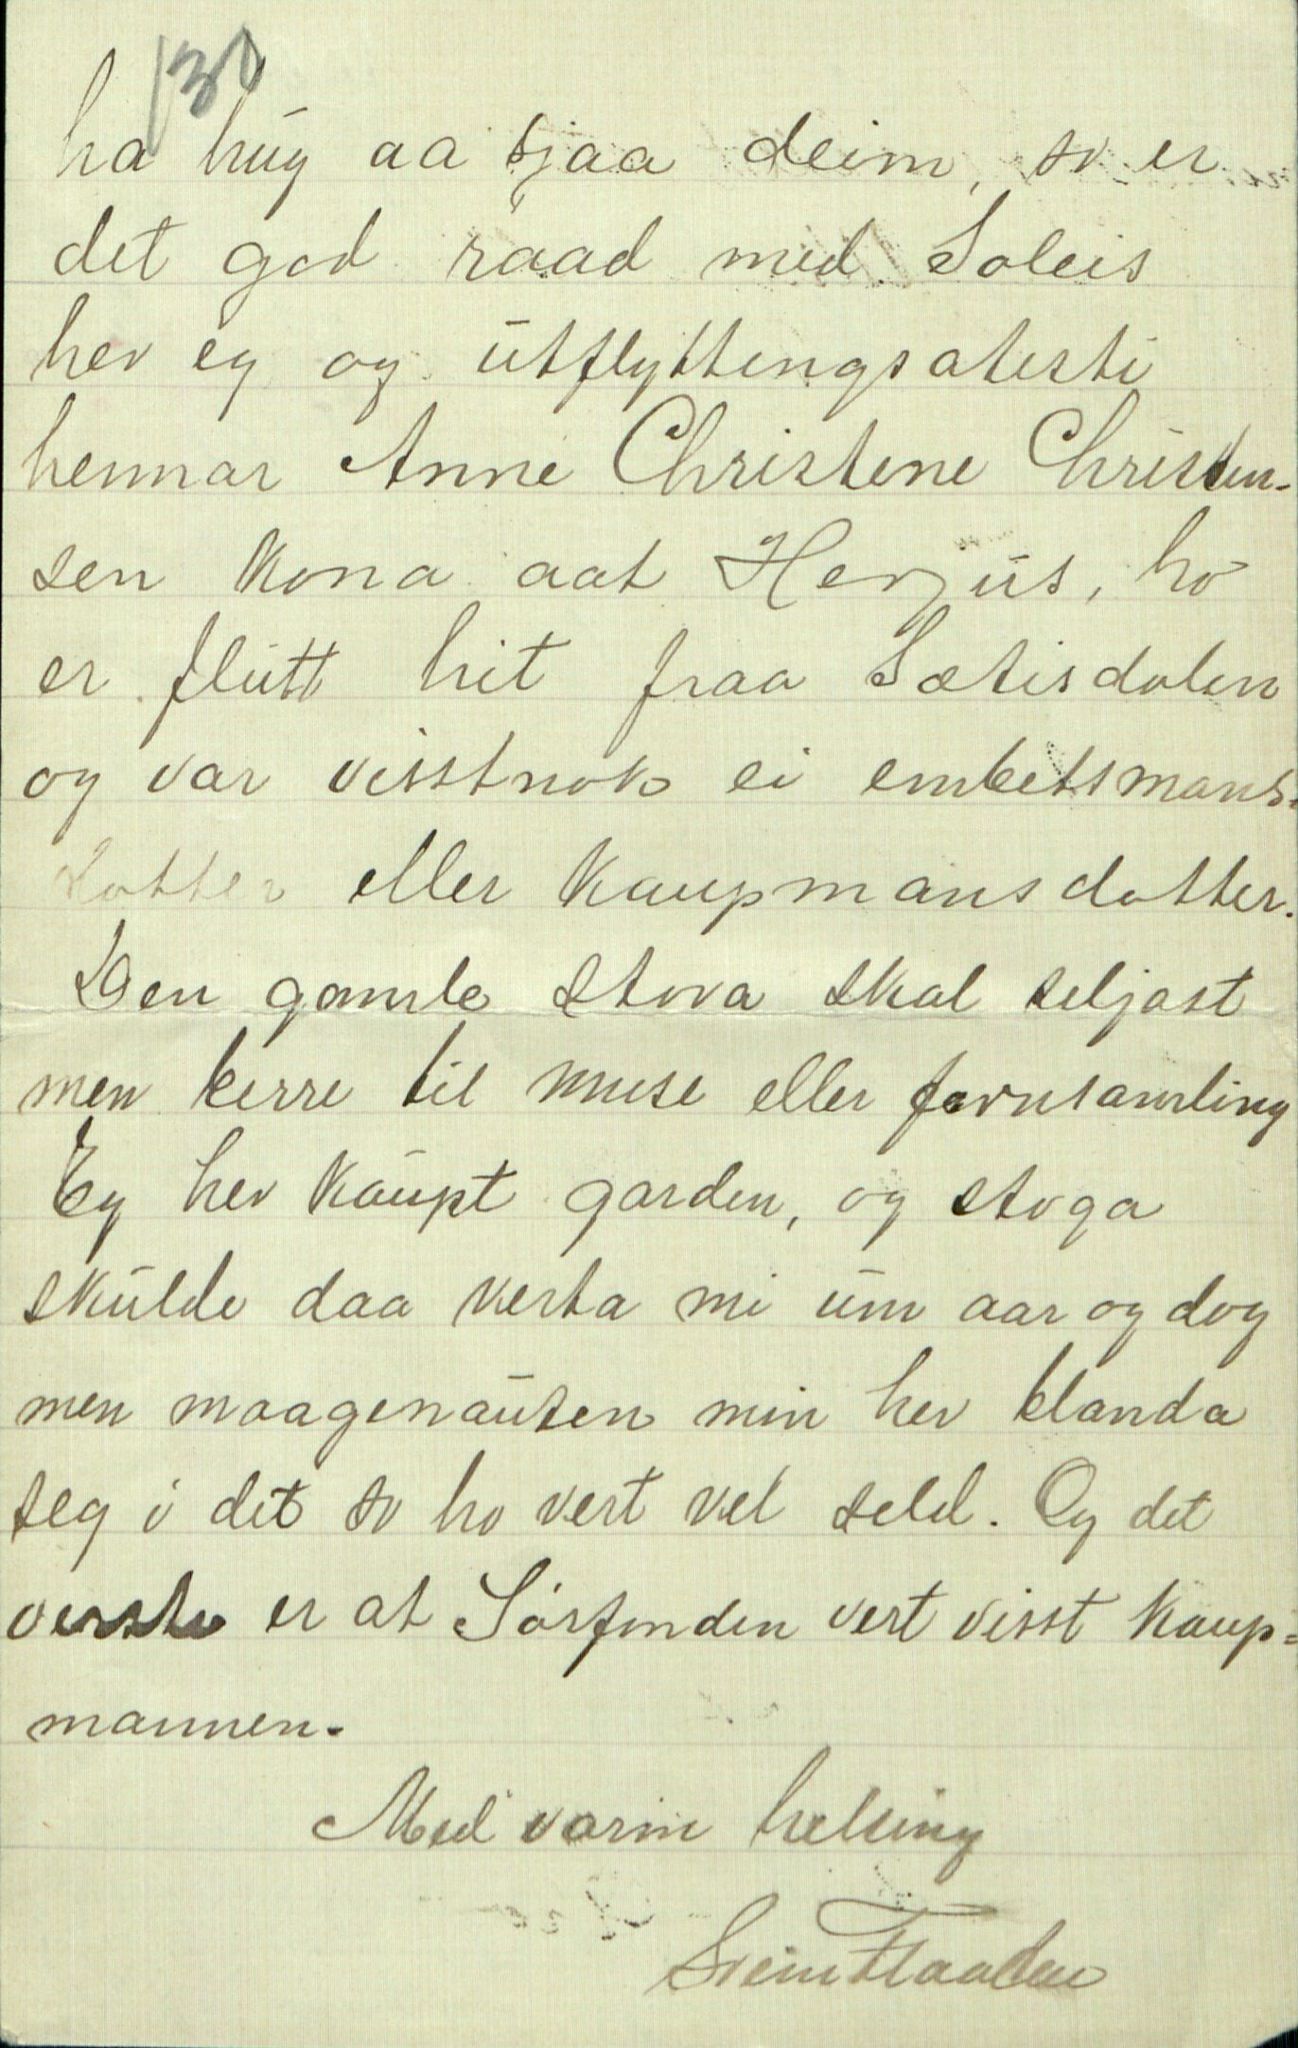 130
ha hug aa sjaa deim, so er
det god raad med. Soleis
hev eg og utflyttingsatesti
hennar Anne Christene Christen-
sen kona aat Herjus, ho
er flutt hit fraa Sætisdalen
og var visstnok ei embetsmans-
dotter eller kaupmansdotter.
Den gamle stova skal seljast
men berre til muse eller fornsamling
Eg hev kaupt garden, og stoga
skulde daa verta mi um aar og dog
men maagenauten min hev blanda
seg i det so ho vert vel seld. Og det
verste er at Sörfonden vert visst kaup=
mannen.
Med varm helsing
Svein Flaaden